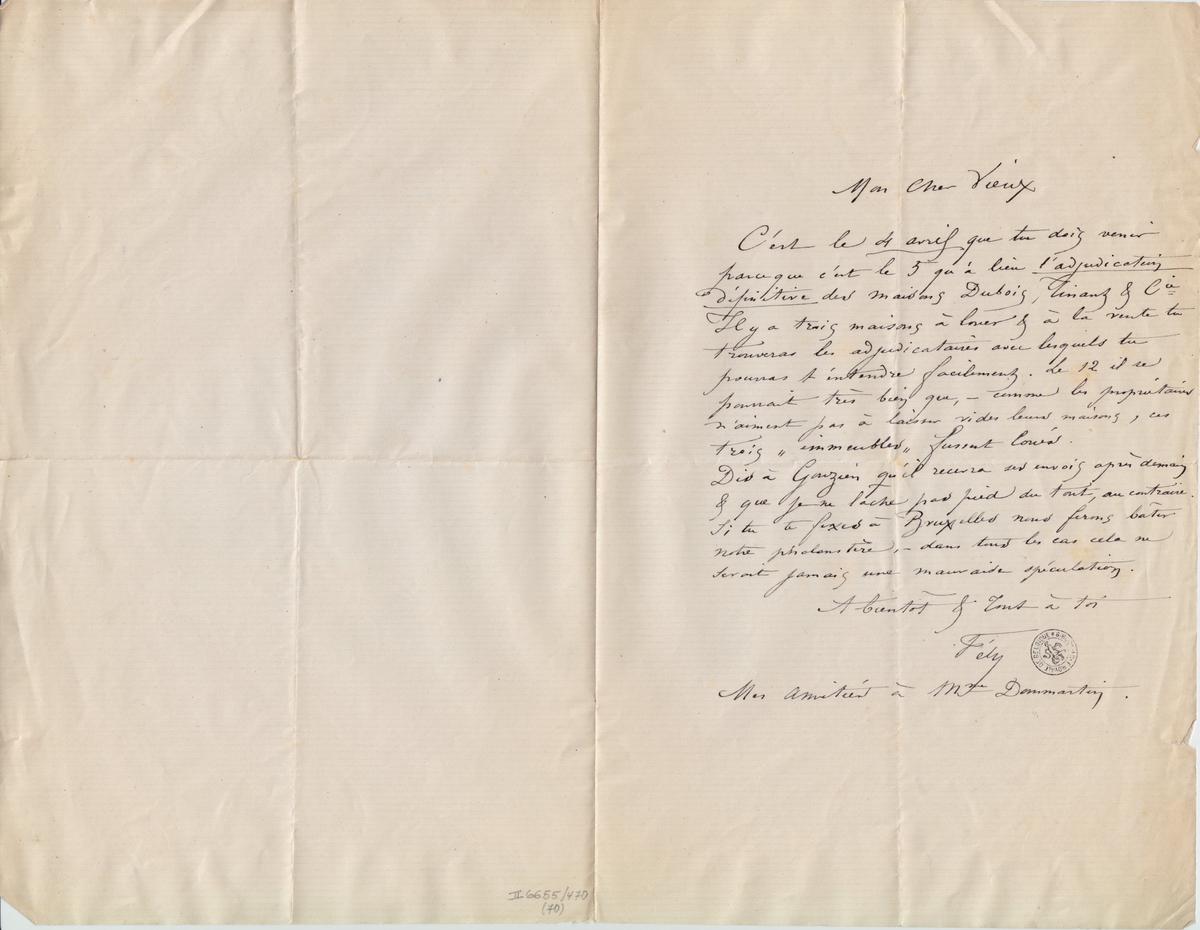 Mon Cher Vieux
C'est le 4 avril que tu dois venir
parceque c'est le 5 qu'à lieu l'adjudication
définitive des maisons Dubois, Tinant & Cie
Il y a trois maisons à louer & à la vente tu
trouveras les adjudicataires avec lesquels tu
pourras t'entendre facilement. Le 12 il se
pourrait très bien que, – comme les propriétaires
n'aiment pas à laisser vides leurs maisons, ces
trois „ immeubles „ fussent loués.
Dis à Gouzien qu'il recevra ses envois après demain
& que je ne lâche pas pied du tout, au contraire.
Si tu te fixes à Bruxelles nous ferons bâtir
notre phalanstère, – dans tous les cas cela ne
serait jamais une mauvaise spéculation.
A bientôt & Tout à toi
Fély
Mes amitiés à Mme Dommartin.
II 6655/470
(70)